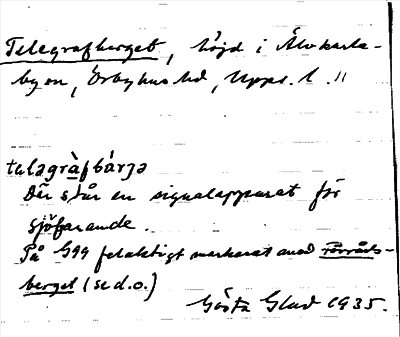 Telegrafberget, höjd i Älvkarle-
by sn, Örbyhus hd, Upps. l. "
telagràfbárjə
Där står en signalapparat för
sjöfarande.
På G99 felaktigt markerat med Förråds-
berget (se d.o.)
Gösta Glad 1935.